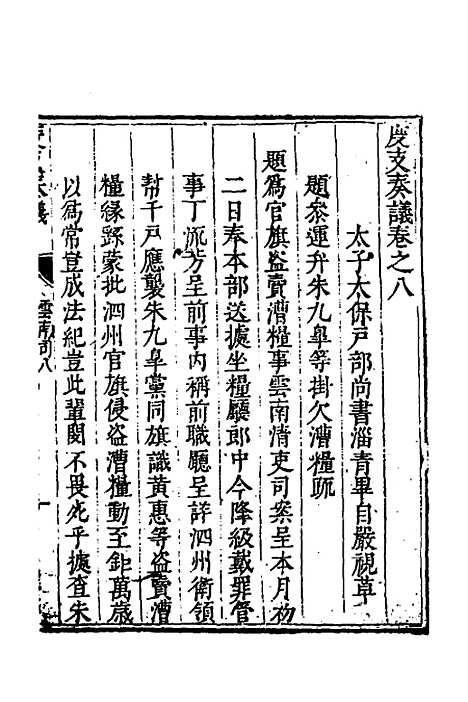 度支奏議卷之八
太子太保戶部尚書淄青畢自嚴視草
題叅運弁朱九臯等掛欠漕糧疏
題爲官旗盜賣漕糧事雲南清吏司案呈本月初
二日奉本部送據坐糧廳郎中今降級戴罪管
事丁流芳呈前事內稱前職廳呈詳泗州衛領
幇千戶應襲朱九臯黨同旗識黃惠等盜賣漕
糧緣繇蒙批泗州官旗侵盜漕糧動至鉅萬歲
以爲常豈成法紀豈此輩閔不畏死乎據查朱
雲南司八